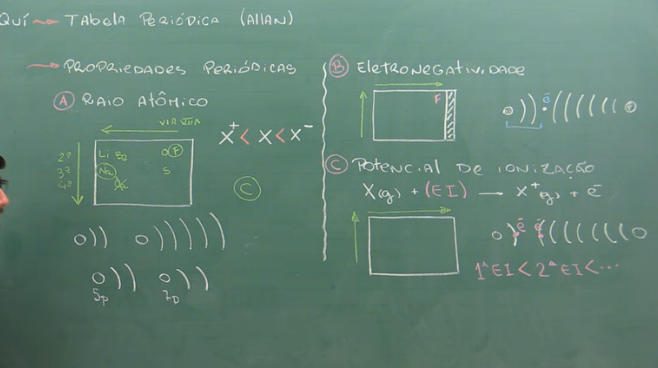 QUÍ → TABELA PERIÓDICA (ALLAN)
→ PROPRIEDADES PERIÓDICAS
A RAIO ATÔMICO
X⁺ < X < X⁻
2º
3º
4º
Li
O F
Na
S
C
5p
7p
B ELETRONEGATIVIDADE
F
e⁻
C POTENCIAL DE IONIZAÇÃO
X(g) + (EI) → X⁺(g) + e⁻
e⁻ e⁻
1ª EI < 2ª EI < ...